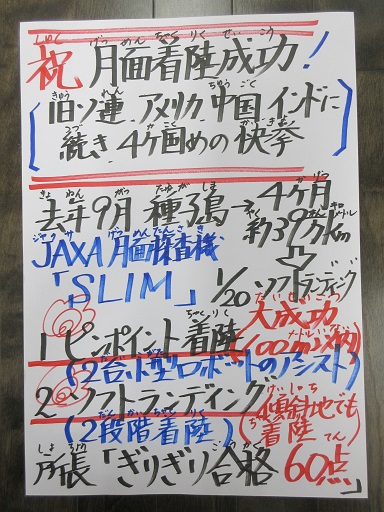 祝 月面着陸成功!
旧ソ連、アメリカ、中国、インドに
続き、4ケ国めの快挙
去年9月 種子島→4ケ月
約39万km
JAXA月面探査機
「SLIM」1/20 ソフトランディング
大成功
1 ピンポイント着陸(100m以内)
(2台小型ロボットのアシスト)
2 ソフトランディング(傾斜地でも
(2段階着陸) 着陸)
所長「ぎりぎり合格60点」